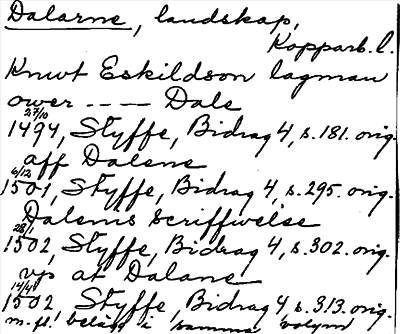 Dalarne, landskap,
Kopparb. l.
Knwt Eskildson lagman
ower --- Dale
27/10 1494, Styffe, Bidrag 4, s. 181. orig.
aff Dalene
6/12 1501, Styffe, Bidrag 4, s. 295. orig.
Dalems scriffwelse
28/1 1502, Styffe, Bidrag 4, s. 302. orig.
vp at Dalane
14/4 1502 Styffe, Bidrag 4, s. 313. orig.
m. fl. belägg i samma volym